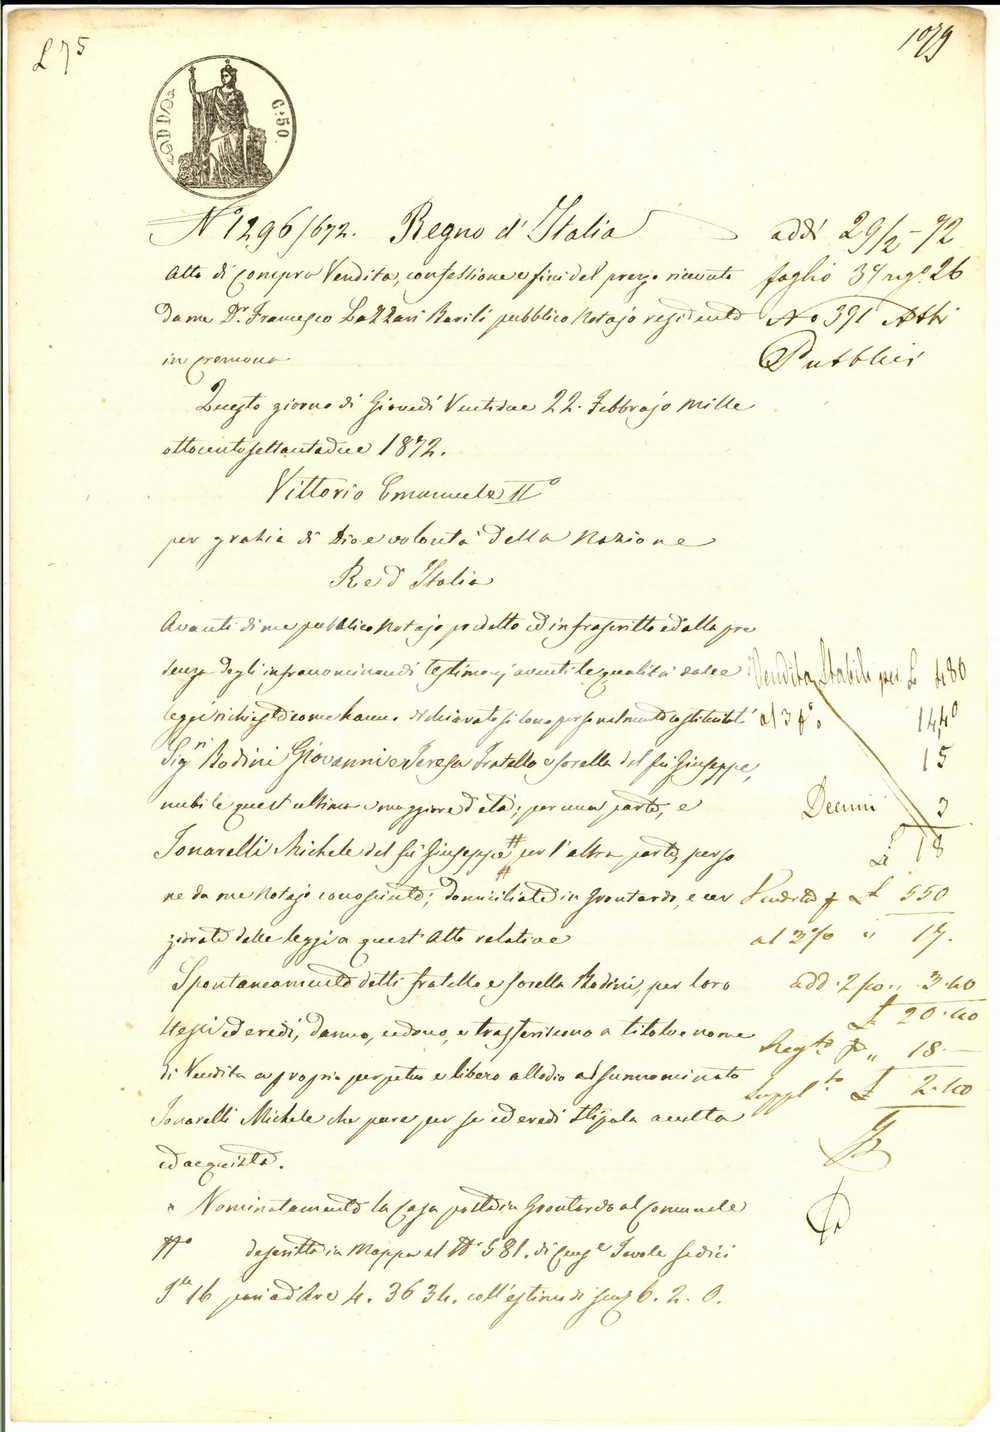 L 75
1079
C: 50.
N° 1296/672. Regno d'Italia
Atto di Compra Vendita, confessione e fini del prezzo ricevuto
da me Dr. Francesco Lazzari Barili pubblico Notajo residente
in Cremona
Questo giorno di Giovedì Ventidue 22. Febbrajo Mille
ottocentosettantadue 1872.
Vittorio Emanuele II°
per grazia di Dio e volontà della Nazione
Re d'Italia
Avanti di me pubblico Notajo predetto ed infrascritto ed alla pre
senza degli infranominandi testimonj aventi le qualità dalle
leggi richieste come hanno dichiarato si sono personalmente costituiti
Sigri Bodini Giovanni e Teresa fratello e sorella del fu Giuseppe,
nubile quest'ultima e maggiore d'età; per una parte, e
Tonarelli Michele del fu Giuseppe # per l'altra parte, perso
ne da me Notajo conosciute; domiciliate in Grontardo, e cer
ziorate delle leggi a quest'Atto relative
Spontaneamente detti fratello e sorella Bodini, per loro
stessi ed eredi, danno, cedono, e trasferiscono a titolo e nome
di Vendita a proprio perpetuo e libero allodio al sunnominato
Tonarelli Michele che pure per se ed eredi stipula accetta
ed acquista.
Nominatamente la Casa posta in Grontardo al Comunale
N° descritta in Mappa al N° 581. di Cens.e Tavole sedici
T.le 16 pari ad Are 4. 36 34. coll'estimo di scudi 6. 2. 0.
addì 29/2-72
foglio 37 reg° 26
No 391 Atti
Pubblici
Vendita Stabili per L 480
al 3 p% 14,40
15
Decimi 3
L 18
Vendita p L 550
al 3% " 17.
add. 2/10 " 3.40
L 20.40
Reg.to p " 18.—
Suppl.to L 2.40